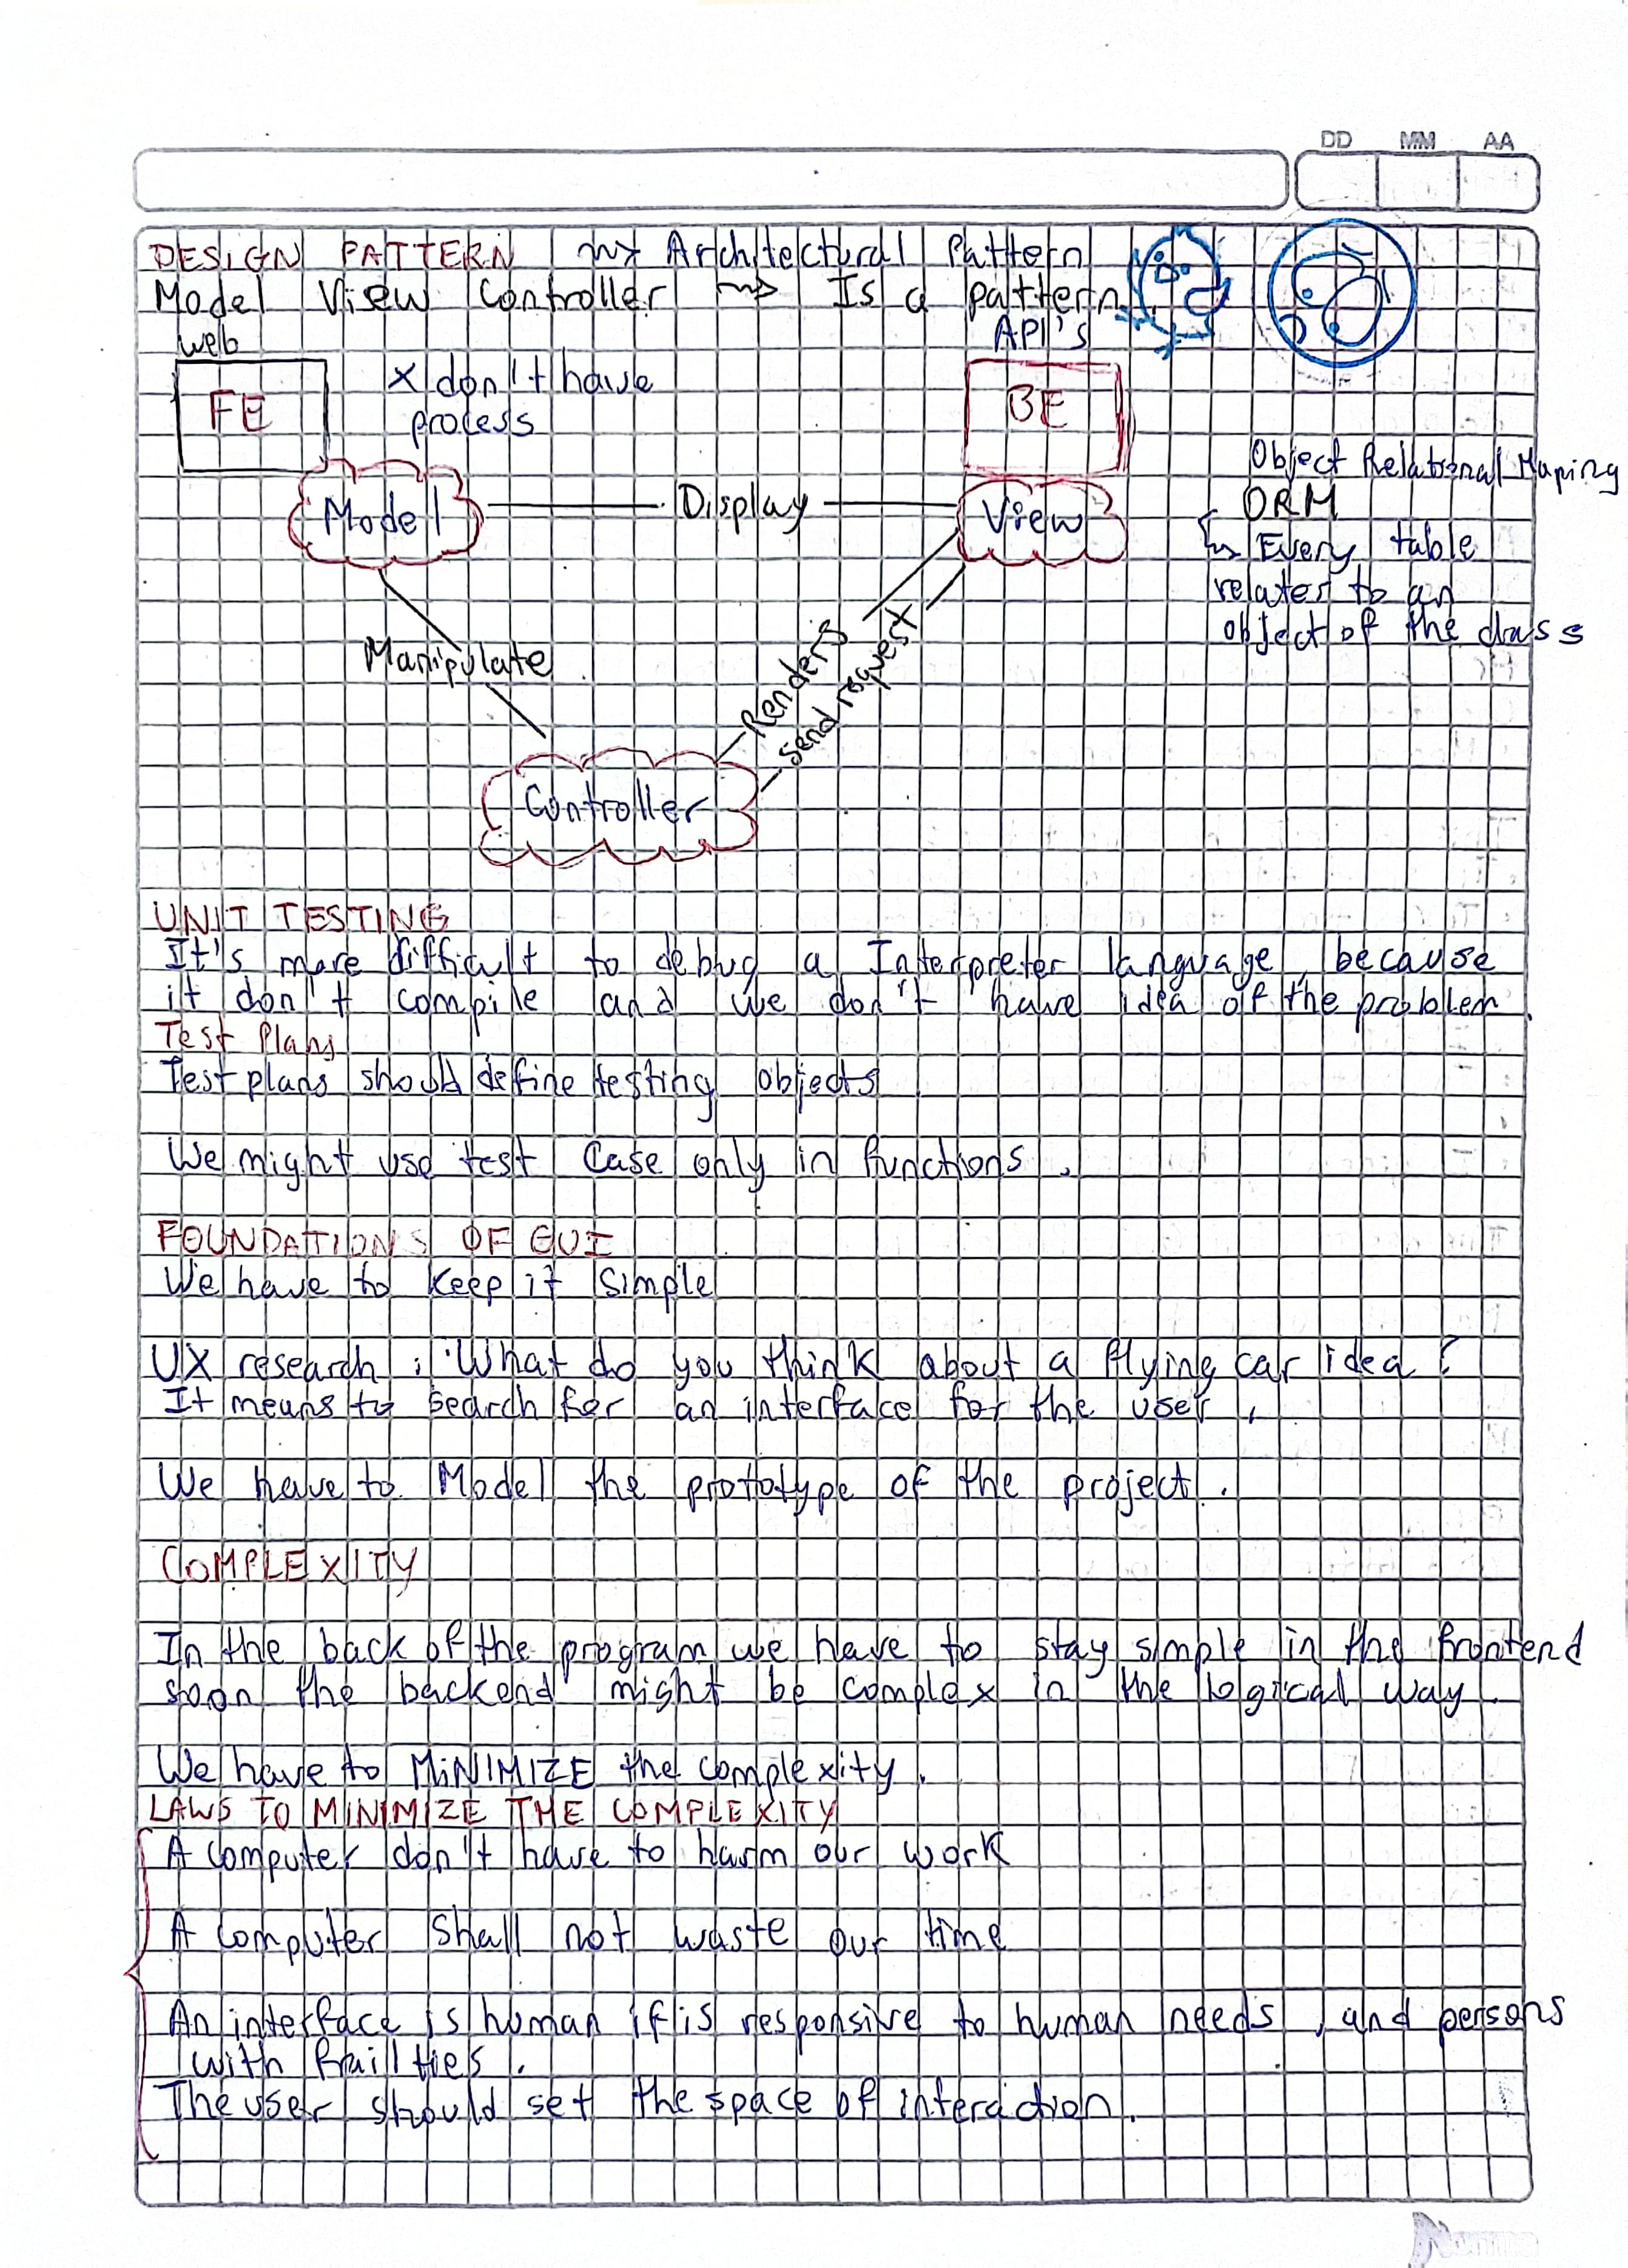 DD MM AA
DESIGN PATTERN ~> Architectural Pattern
Model View Controller ~> Is a pattern
web
API's
FE
x don't have
process
BE
Object Relational Maping
Model
Display
View
ORM
↳ Every table
relates to an
object of the class
Manipulate
Renders
send request
Controller
UNIT TESTING
It's more difficult to debug a Interpreter language, because
it don't compile and we don't have idea of the problem.
Test Plans
Test plans should define testing objects
We might use test Case only in functions.
FOUNDATIONS OF GUI
We have to keep it simple
UX research: What do you think about a flying car idea?
It means to search for an interface for the user.
We have to Model the prototype of the project.
COMPLEXITY
In the back of the program we have to stay simple in the frontend
soon the backend might be complex in the logical way.
We have to MiNIMIZE the complexity.
LAWS TO MINIMIZE THE COMPLEXITY
A computer don't have to harm our work
A computer shall not waste our time
An interface is human if is responsive to human needs, and persons
with frailties.
The user should set the space of interaction.